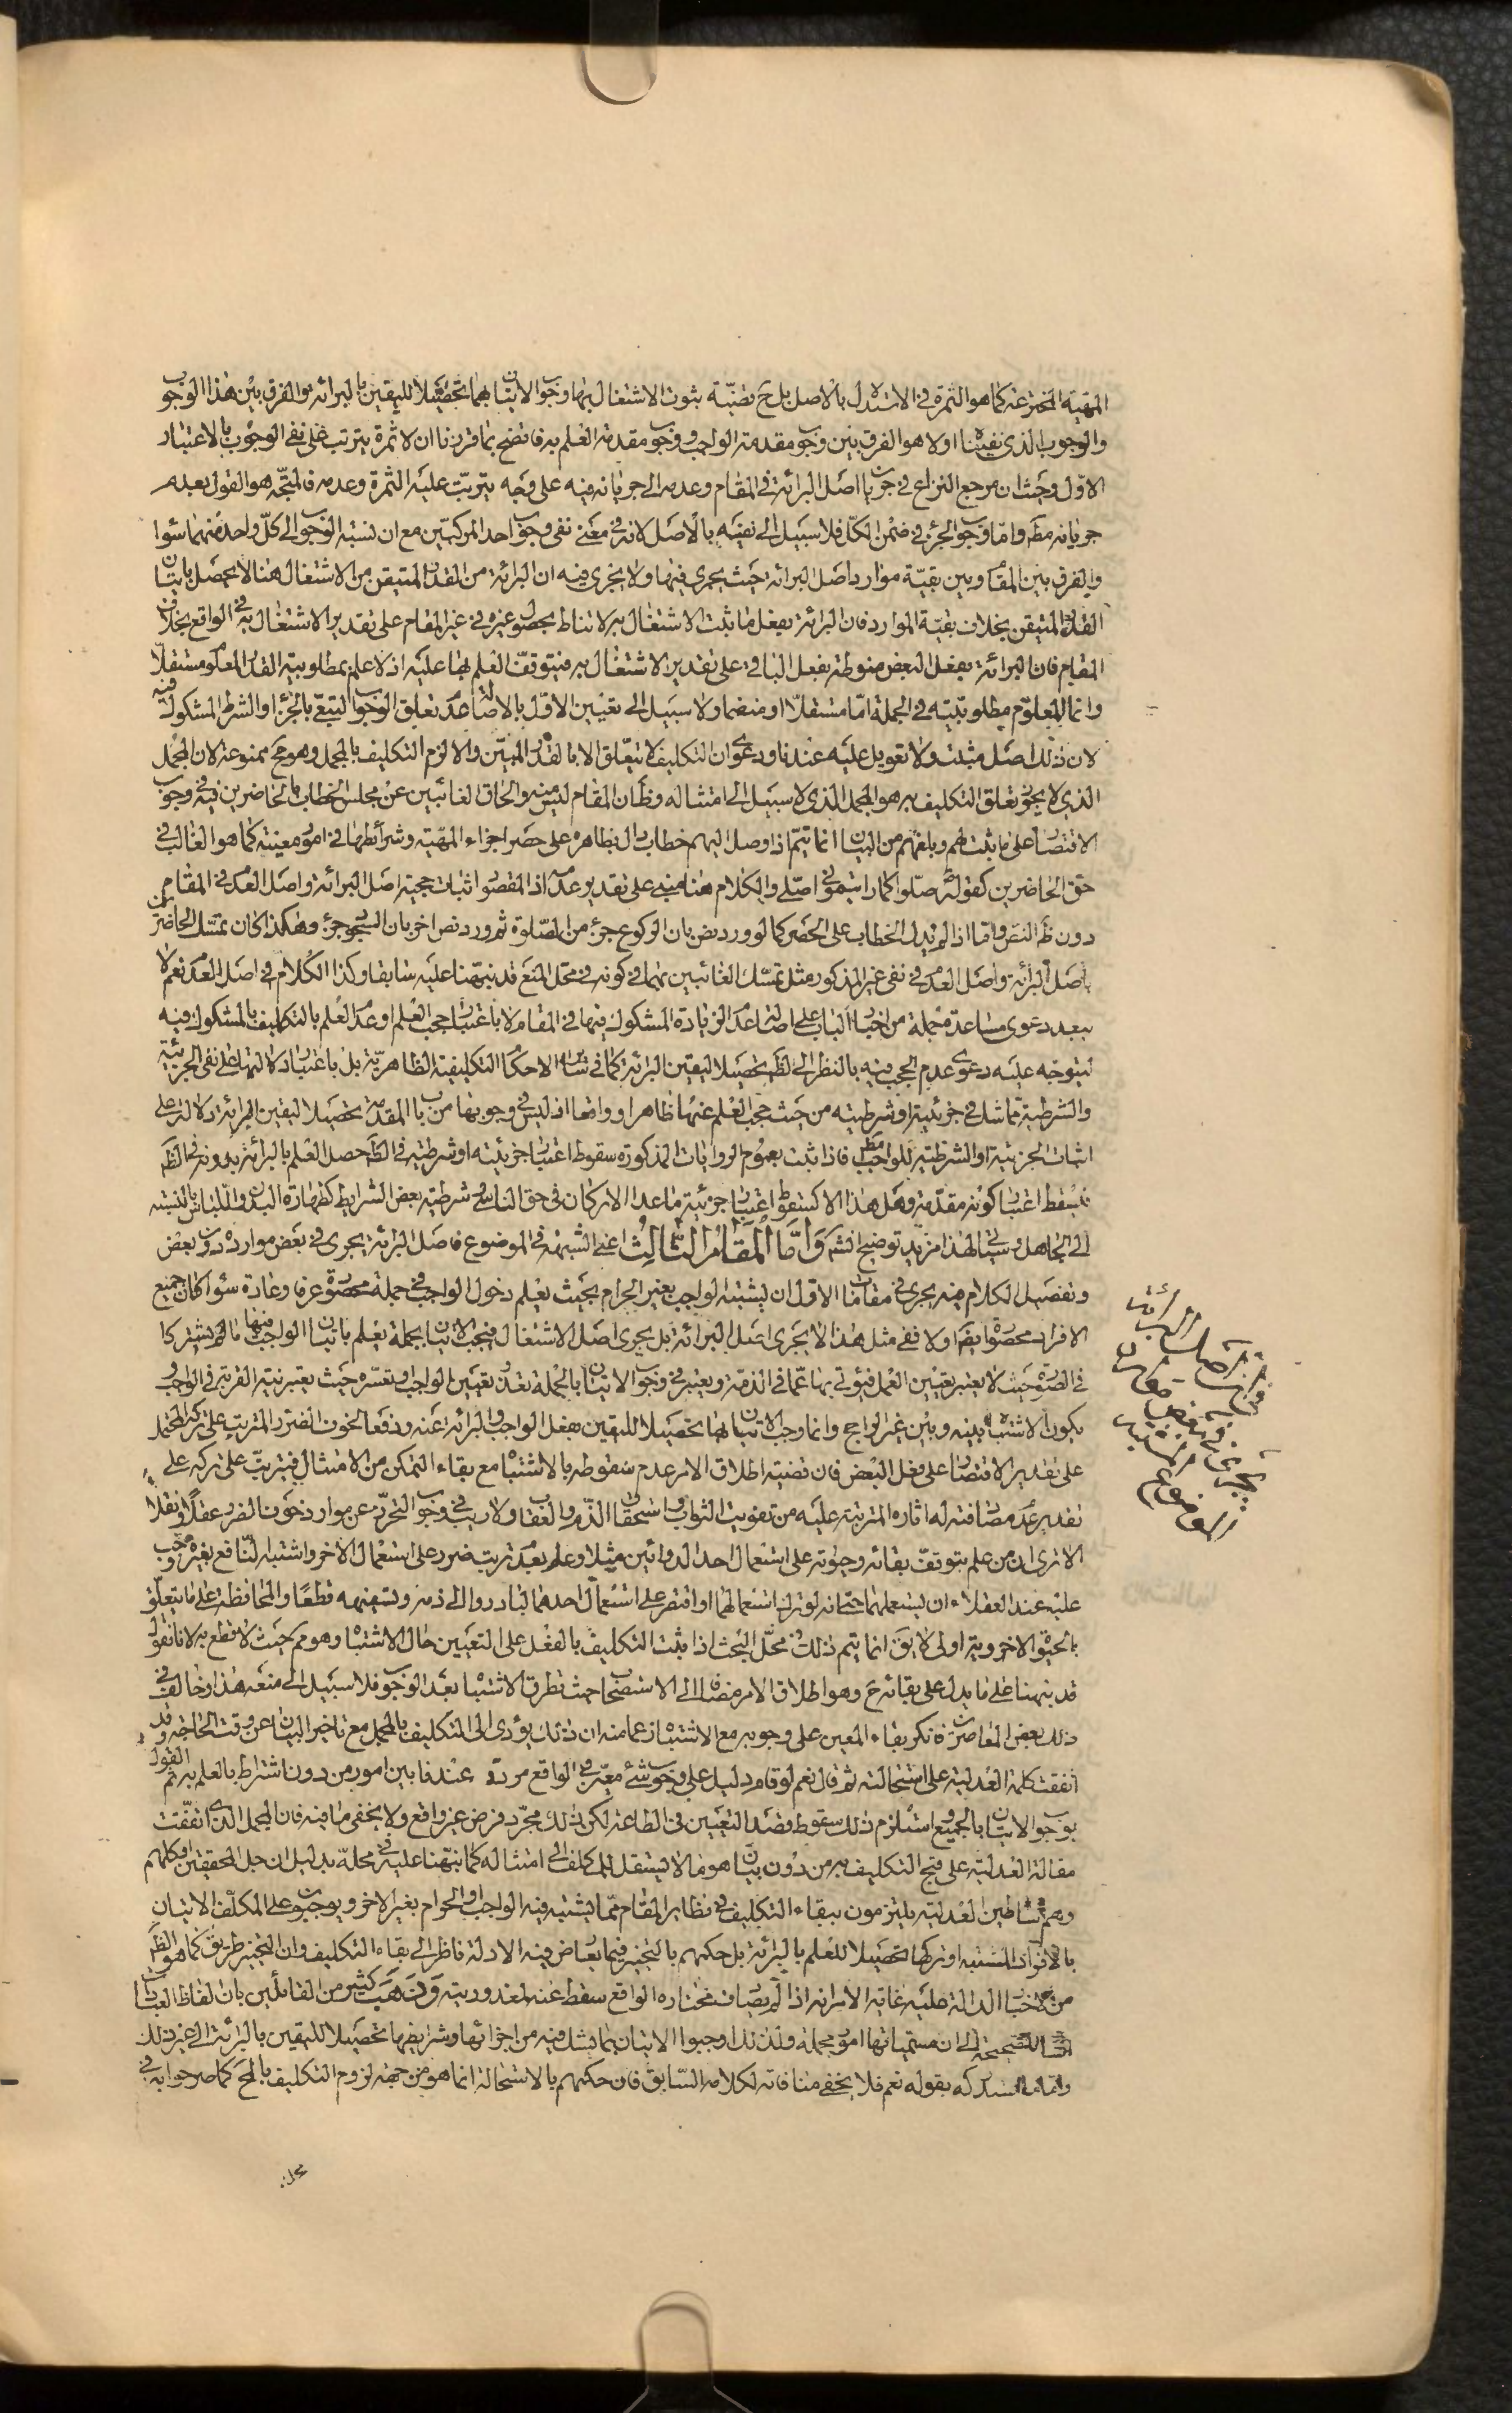 المهية المخترعة كما هو الثمرة في الاستدلال بالاصل بل ح قضية ثبوت الاشتغال بها وجوب الاتيان بهما تحصيلا لليقين بالبرائة والفرق بين هذا الوجوب
والوجوب الذى نفيناه اولا هو الفرق بين وجوب مقدمة الواجب ووجوب مقدمة العلم به فاتضح بما قررنا ان لا ثمرة يترتب على نفى الوجوب بالاعتبار
الاول وحيث ان مرجع النزاع في جريان اصل البرائة في المقام وعدمه الى جريانه فيه على وجه يترتب عليه الثمرة وعدمه فالمتجه هو القول بعدم
جريانه مط واما وجوب الجزء في ضمن الكل فلا سبيل الى نفيه بالاصل لانه في معنى نفى وجوب احد المركبين مع ان نسبة الوجوب الى كل واحد منهما سواء
والفرق بين المقام وبين بقية موارد اصل البرائة حيث يجرى فيها ولا يجرى فيه ان البرائة من القدر المتيقن من الاشتغال هنا لا يحصل باتيان
القدر المتيقن بخلاف بقية الموارد فان البرائة بفعل ما ثبت الاشتغال به لا تناط بحصول غيره في غير المقام على تقدير الاشتغال به في الواقع بخلاف
المقام فان البرائة بفعل البعض منوطة بفعل الباقى على تقدير الاشتغال به فيتوقف العلم بها عليه اذ لا علم بمطلوبية القدر المعلوم مستقلا
وانما المعلوم مطلوبيته في الجملة اما مستقلا او منضما ولا سبيل الى تعيين الاول باصالة عدم تعلق الوجوب التبعى بالجزء او الشرط المشكوك فيه
لان ذلك اصل مثبت ولا تعويل عليه عندنا ودعوى ان التكليف لا يتعلق الا بالقدر المبين والا لزم التكليف بالمجمل وهو مح ممنوعة لان المجمل
الذى لا يجوز تعلق التكليف به هو المجمل الذى لا سبيل الى امتثاله وظ ان المقام ليس منه والحاق الغائبين عن مجلس الخطاب بالحاضرين فيه في وجوب
الاقتصار على ما ثبت لهم وبلغهم من البيان انما يتم اذا وصل اليهم خطاب دال بظاهره على حصر اجزاء المهية وشرائطها في امور معينة كما هو الغالب في
حق الحاضرين كقوله ص صلوا كما رايتمونى اصلى والكلام هنا مبنى على تقدير عدمه اذ المقصود اثبات حجية اصل البرائة واصل العدم في المقام
دون ظ النص واما اذا لم يدل الخطاب على الحصر كما لو ورد نص بان الركوع جزء من الصلوة ثم ورد نص اخر بان السجود جزء وهكذا كان تمسك الحاضرين
باصل البرائة واصل العدم في نفى غير المذكور مثل تمسك الغائبين بهما في كونه في محل المنع قد نبهنا عليه سابقا وكذا الكلام في اصل العدم نعم لا
يبعد دعوى مساعدة جملة من اخبار الباب على اصالة عدم الزيادة المشكوك فيها في المقام لا باعتبار حجب العلم او عدم العلم بالتكليف بالمشكوك فيه
ليتوجه عليه دعوى عدم الحجب فيه بالنظر الى الظ تحصيلا ليقين البرائة كما في سائر الاحكام التكليفية الظاهرية بل باعتبار دلالتها على نفى الجزئية
والشرطية مما شك في جزئيته او شرطيته من حيث حجب العلم عنها ظاهرا وواقعا اذ ليس في وجوبها من باب المقدمة تحصيلا ليقين البرائة دلالة على
اثبات الجزئية او الشرطية للواجب مط فاذا ثبت بعموم الروايات المذكورة سقوط اعتبار جزئيته او شرطيته في الظ حصل العلم بالبرائة بدونه في الظ
فيسقط اعتبار كونه مقدمة وهل هذا الا كسقوط اعتبار جزئية ما عدا الاركان في حق الناسى وشرطية بعض الشرايط كطهارة البدن واللباس بالنسبة
الى الجاهل وسياتى لهذا مزيد توضيح انش واما المقام الثالث اعنى الشبهة في الموضوع فاصل البرائة يجرى في بعض موارده دون بعض
وتفصيل الكلام فيه يجرى في مقامات الاول ان يشتبه الواجب بغير الحرام بحيث يعلم دخول الواجب في جملة محصورة عرفا وعادة سواء كان جميع
الافراد محصورة ايضا اولا ففى مثل هذا لا يجرى اصل البرائة بل يجرى اصل الاشتغال فيجب الاتيان بجملة يعلم باتيان الواجب فيها ما لم يشتركا
في الصورة حيث لا يعتبر تعيين العمل فيؤتى بها عما في الذمة ويعتبر في وجوب الاتيان بالجملة تعذر تعيين الواجب وتعسره حيث يعتبر نية القربة في الواجب
يكون الاشتباه بينه وبين غير الراجح وانما وجب الاتيان بها تحصيلا لليقين بفعل الواجب والبرائة عنه ودفعا لخوف الضرر المترتب على ترك المحتمل
على تقدير الاقتصار على فعل البعض فان قضية اطلاق الامر عدم سقوطه بالاشتباه مع بقاء التمكن من الامتثال فيترتب على تركه على
تقدير عدم مصادفته له اثاره المترتبة عليه من تفويت الثواب واستحقاق الذم والعقاب ولا ريب في وجوب التحرز عن موارد خوف الضرر عقلا ونقلا
الا ترى ان من علم بتوقف بقائه وحيوته على استعمال احد الدوائين مثلا وعلم بعدم ترتب ضرر على استعمال الاخر واشتبه النافع بغيره وجب
عليه عند العقلاء ان يستعملهما حتى انه لو ترك استعمالهما او اقتصر على استعمال احدهما لبادروا الى ذمه وتسفيهه قطعا والمحافظة على ما يتعلق
بالحيوة الاخروية اولى لا يق انما يتم ذلك في محل البحث اذا ثبت التكليف بالفعل على التعيين حال الاشتباه وهو مم حيث لا قطع به لانا نقول
قد نبهنا على ما يدل على بقائه ح وهو اطلاق الامر مضافا الى الاستصحاب حيث تطرق الاشتباه بعد الوجوب فلا سبيل الى منعه هذا وخالف في
ذلك بعض المعاصرين فانكر بقاء المعين على وجوبه مع الاشتباه زعما منه ان ذلك يؤدى الى التكليف بالمجمل مع تاخير البيان عن وقت الحاجة وقد
اتفقت كلمة العدلية على استحالته ثم قال نعم لو قام دليل على وجوب شئ معين في الواقع مردد عندنا بين امور من دون اشتراط بالعلم به تم القول
بوجوب الاتيان بالجميع واستلزم ذلك سقوط قصد التعيين في الطاعة لكن ذلك مجرد فرض غير واقع ولا يخفى ما فيه فان المجمل الذى اتفقت
مقالة العدلية على قبح التكليف به من دون بيان هو ما لا يستقل المكلف الى امتثاله كما نبهنا عليه في محله بدليل ان جل المحققين او كلهم
وهم اساطين العدلية يلتزمون ببقاء التكليف في نظاير المقام مما يشتبه فيه الواجب او الحرام بغير الاخر ويوجبون على المكلف الاتيان
بالافراد المشتبه او تركها تحصيلا للعلم بالبرائة بل حكمهم بالتخيير فيما يعارض فيه الادلة ناظر الى بقاء التكليف وان التخيير طريق كما هو الظ
من الاخبار الدالة عليه غاية الامر انه اذا لم يصادف مختاره الواقع سقط عنه لمعذوريته وذهب كثير من القائلين بان الفاظ العبادات
اسام للصحيحة الى ان مسمياتها امور مجملة ولذلك اوجبوا الاتيان بما يشك فيه من اجزائها وشرايطها تحصيلا لليقين بالبرائة الى غير ذلك
واما ما استدركه بقوله نعم فلا يخفى منافاته لكلامه السابق فان حكمهم بالاستحالة انما هو من جهة لزوم التكليف بالمح كما صرحوا به في
محله
في ان اصل البرائة
يجرى في بعض موارد
الموضوع المشتبه